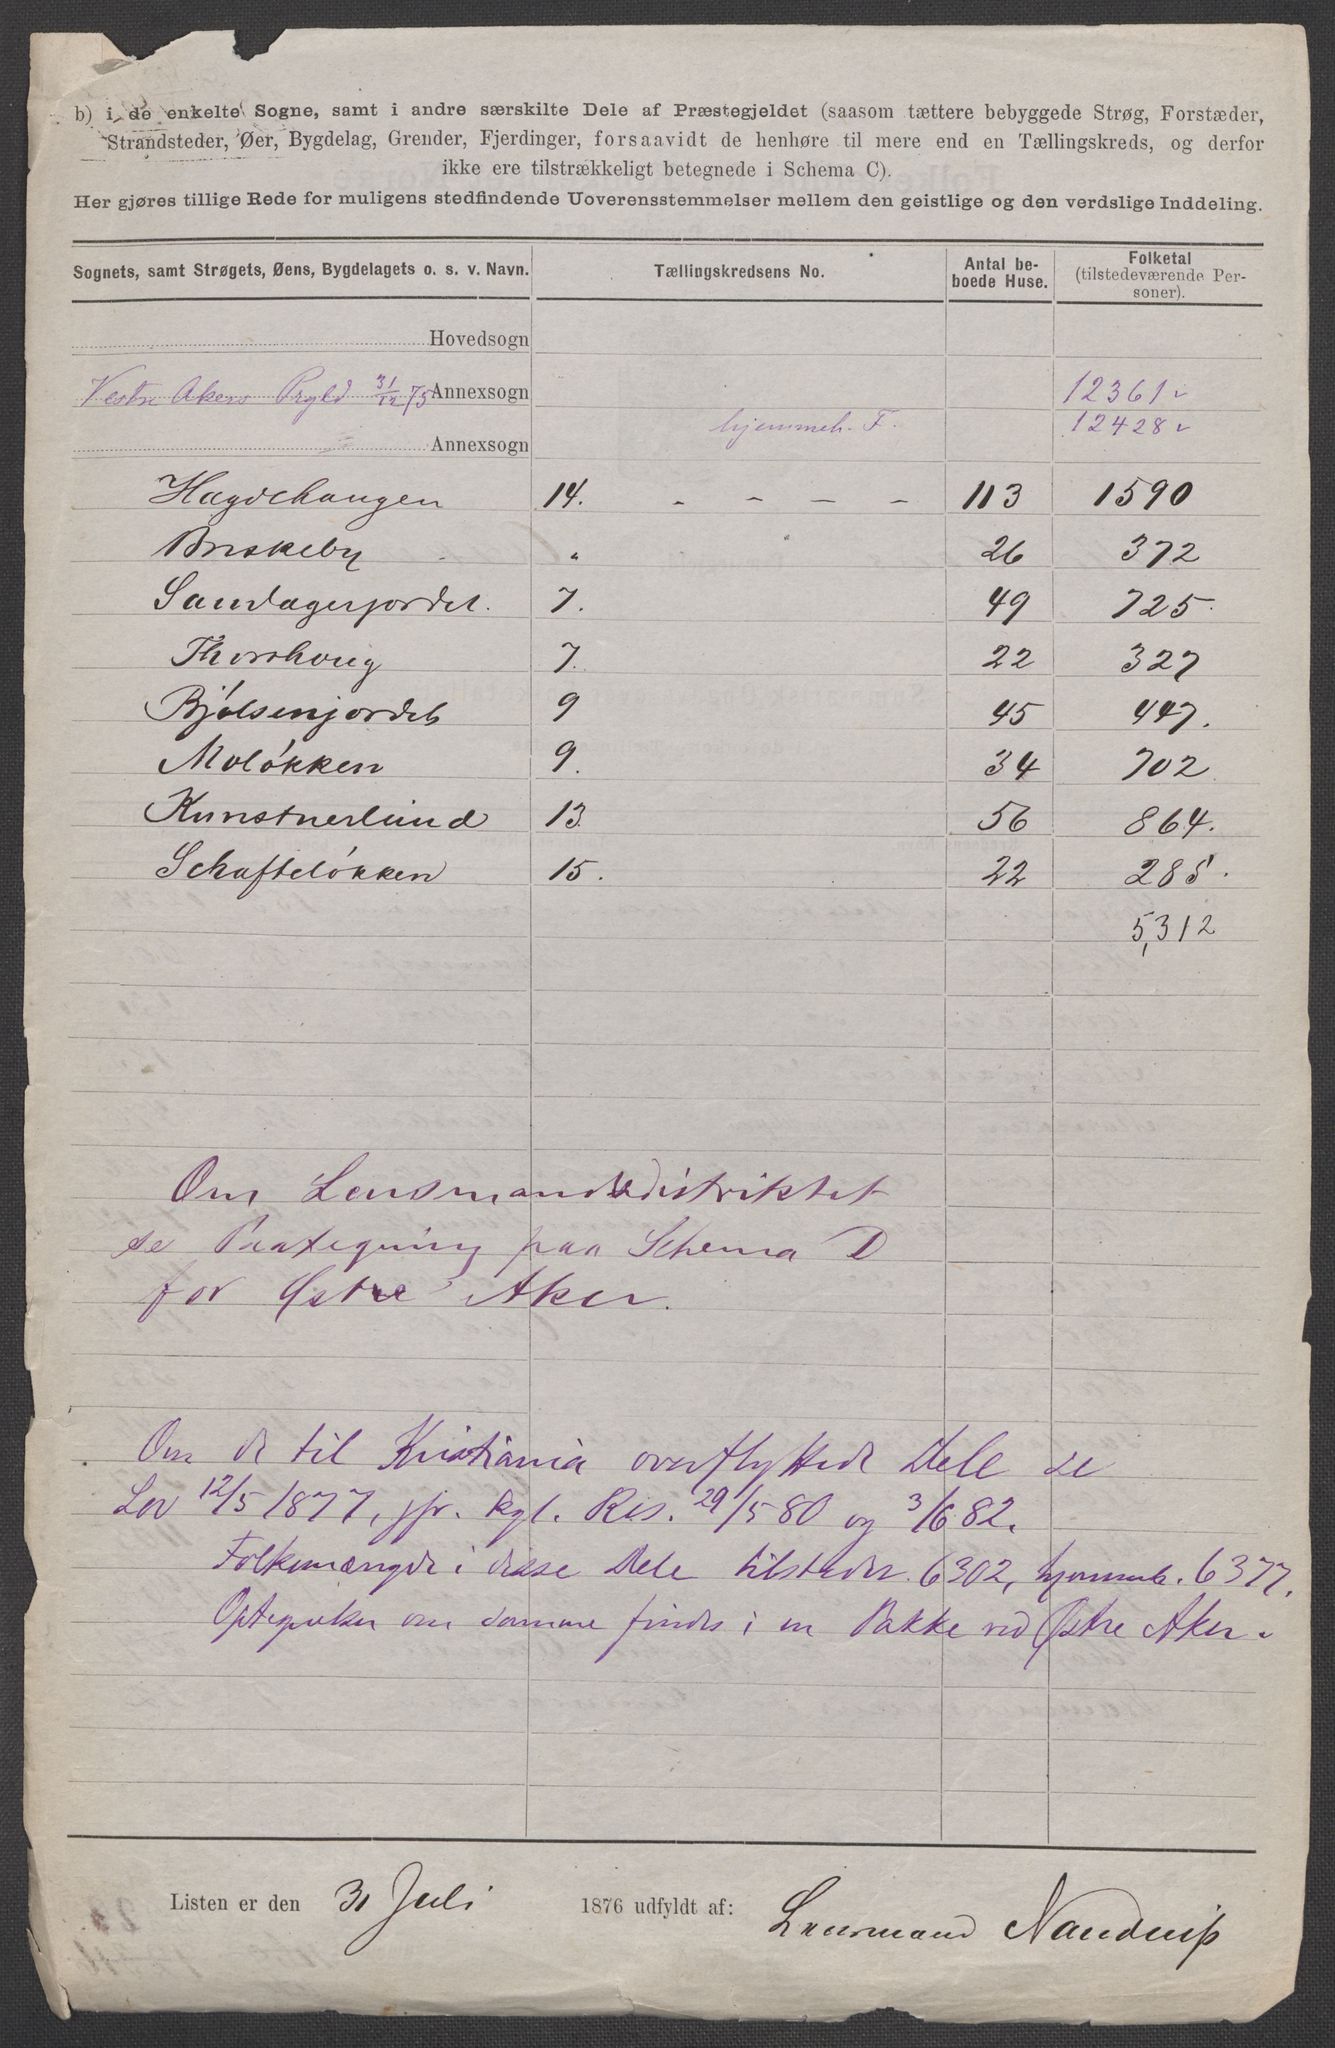 b) i de enkelte Sogne, samt i andre særskilte Dele af Præstegjeldet (saasom tættere bebyggede Strøg, Forstæder,
Strandsteder, Øer, Bygdelag, Grender, Fjerdinger, forsaavidt de henhøre til mere end en Tællingskreds, og derfor
ikke ere tilstrækkeligt betegnede i Schema C).
Her gjøres tillige Rede for muligens stedfindende Uoverensstemmelser mellem den geistlige og den verdslige Inddeling.
Sognets, samt Strøgets, Øens, Bygdelagets o. s. v. Navn. Tællingskredsens No. Antal beboede Huse. Folketal (tilstedeværende Personer).
Hovedsogn
Vestre Akers Prgld 31/12 75 Annexsogn 12361
Annexsogn hjemmeh. F. 12428
Hægdehaugen 14. - - - - 113 1590
Briskeby " " 26 372
Sandagerjordet. 7. 49 725.
Thorshoug 7. 22 327
Bjølsenjordet 9 45 447.
Moløkken 9. 34 702
Kunstnerlund 13. 56 864.
Schafteløkken 15. 22 285.
5,312
Om Lensmandsdistriktet
se Paategning paa Schema D
for Østre Aker.
Om de til Kristiania overflyttede Dele se
Lov 12/5 1877, jfr. kgl. Res. 29/5 80 og 3/6 82.
Folkemængde i disse Dele tilstedev. 6302, hjemmeh. 6377.
om samme findes i en Pakke ved Østre Aker.
Listen er den 31 Juli 1876 udfyldt af: Lensmand Nandrup